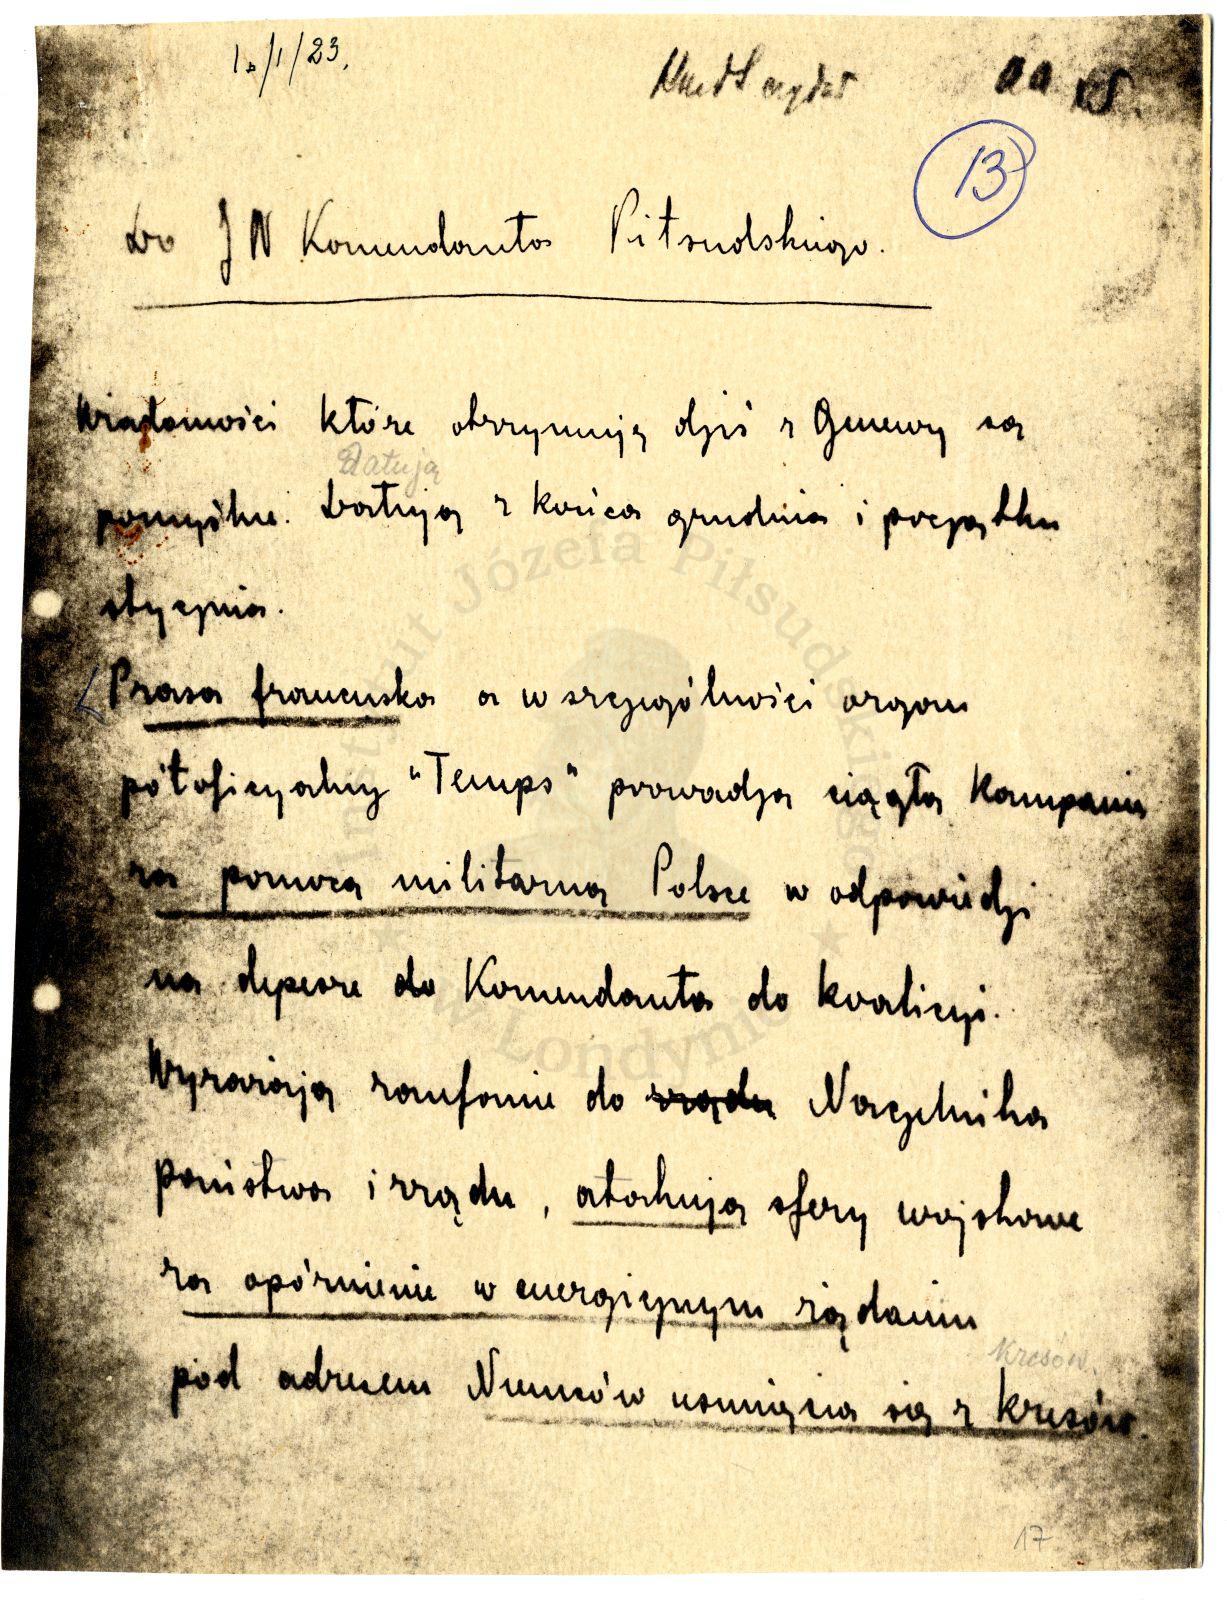 1./1/23.
a a
13
Do J N Komendanta Piłsudskiego.
Wiadomości które otrzymują dziś z Genewy są
Datują
pomyślne. Datują z końca grudnia i początku
stycznia.
Prasa francuska a w szczególności organ
półoficyalny "Temps" prowadzą ciągłą kampanię
za pomocą militarną Polsce w odpowiedzi
na depesze do Komendanta do koalicyi.
Wyrażają zaufanie do rządu Naczelnika
państwa i rządu, atakują sfery wojskowe
za opóźnienie w energicznym żądaniu
Kresów.
pod adresem Niemców usunięcia się z kresów.
17
Instytut Józefa Piłsudskiego
w Londynie